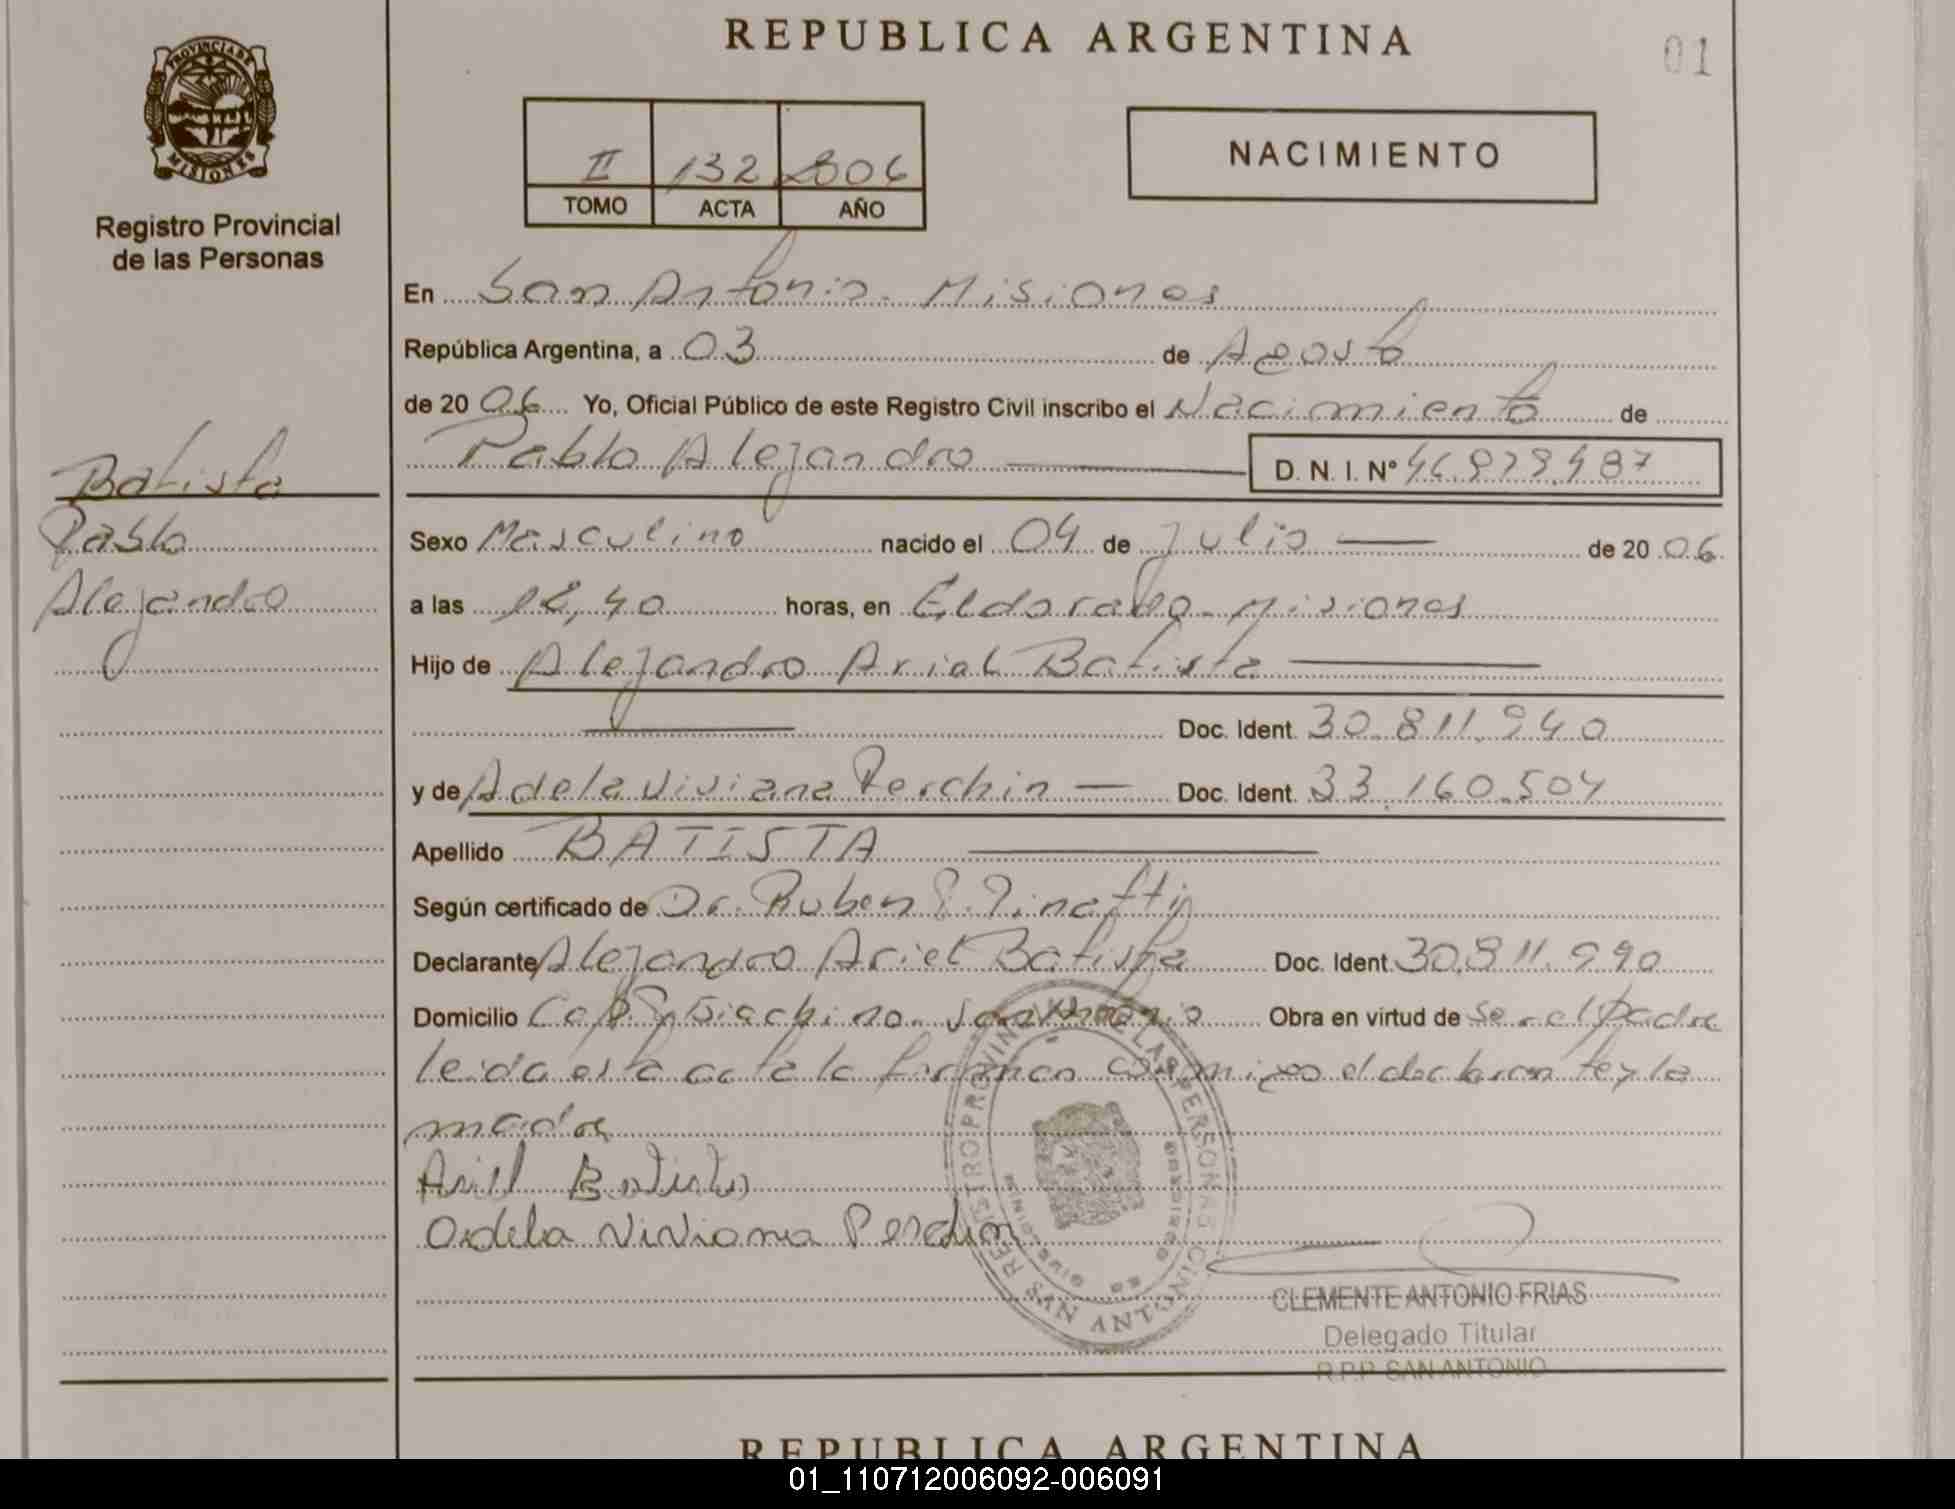 REPUBLICA ARGENTINA
01
PROVINCIA DE
MISIONES
Registro Provincial
de las Personas
II 132 2006
TOMO ACTA AÑO
NACIMIENTO
En San Antonio - Misiones
República Argentina, a 03 de Agosto
de 20 06 Yo, Oficial Público de este Registro Civil inscribo el Nacimiento de
Pablo Alejandro D. N. I. Nº
Batista
Pablo
Alejandro
Sexo Masculino nacido el 04 de Julio de 20 06
a las horas, en Eldorado - Misiones
Hijo de Alejandro Ariel Batista
Doc. Ident. 30.811.940
y de Adela Viviana Perchin Doc. Ident. 33.160.504
Apellido BATISTA
Según certificado de Dr. Ruben
Declarante Alejandro Ariel Batista Doc. Ident. 30.811.940
Domicilio Cap. Giachino - San Antonio Obra en virtud de Ser el padre
leida esta acta la firman conmigo el declarante y la
madre
Ariel Batista
Adela Viviana Perchin
REGISTRO PROVINCIAL DE LAS PERSONAS
SAN ANTONIO
CLEMENTE ANTONIO FRIAS
Delegado Titular
R.P.P. SAN ANTONIO
REPUBLICA ARGENTINA
01_110712006092-006091